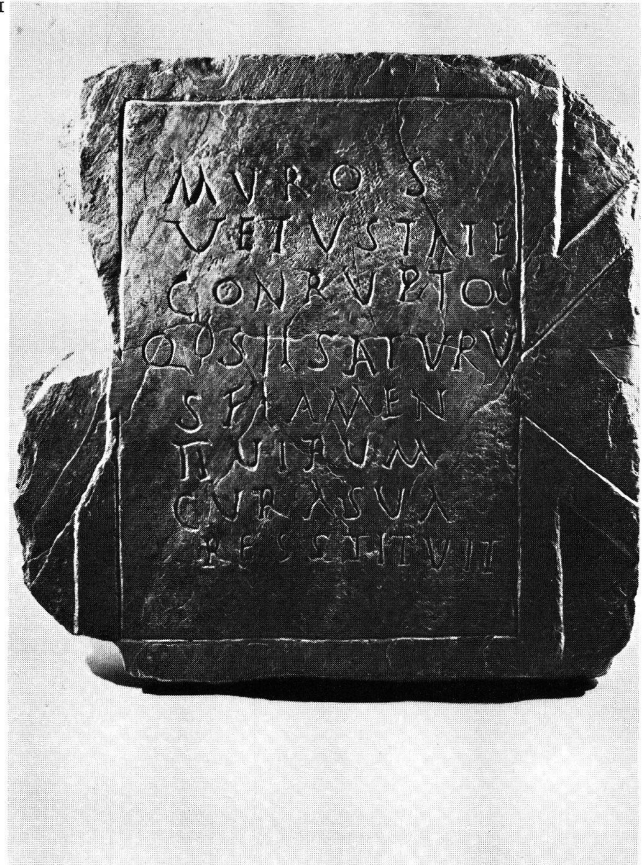 MVROS
VETVSTATE
CONRVPTOS
QOSIISATVRV
S FLAMEN
II VIRVM
CVRA SVA
RESSTITVIT